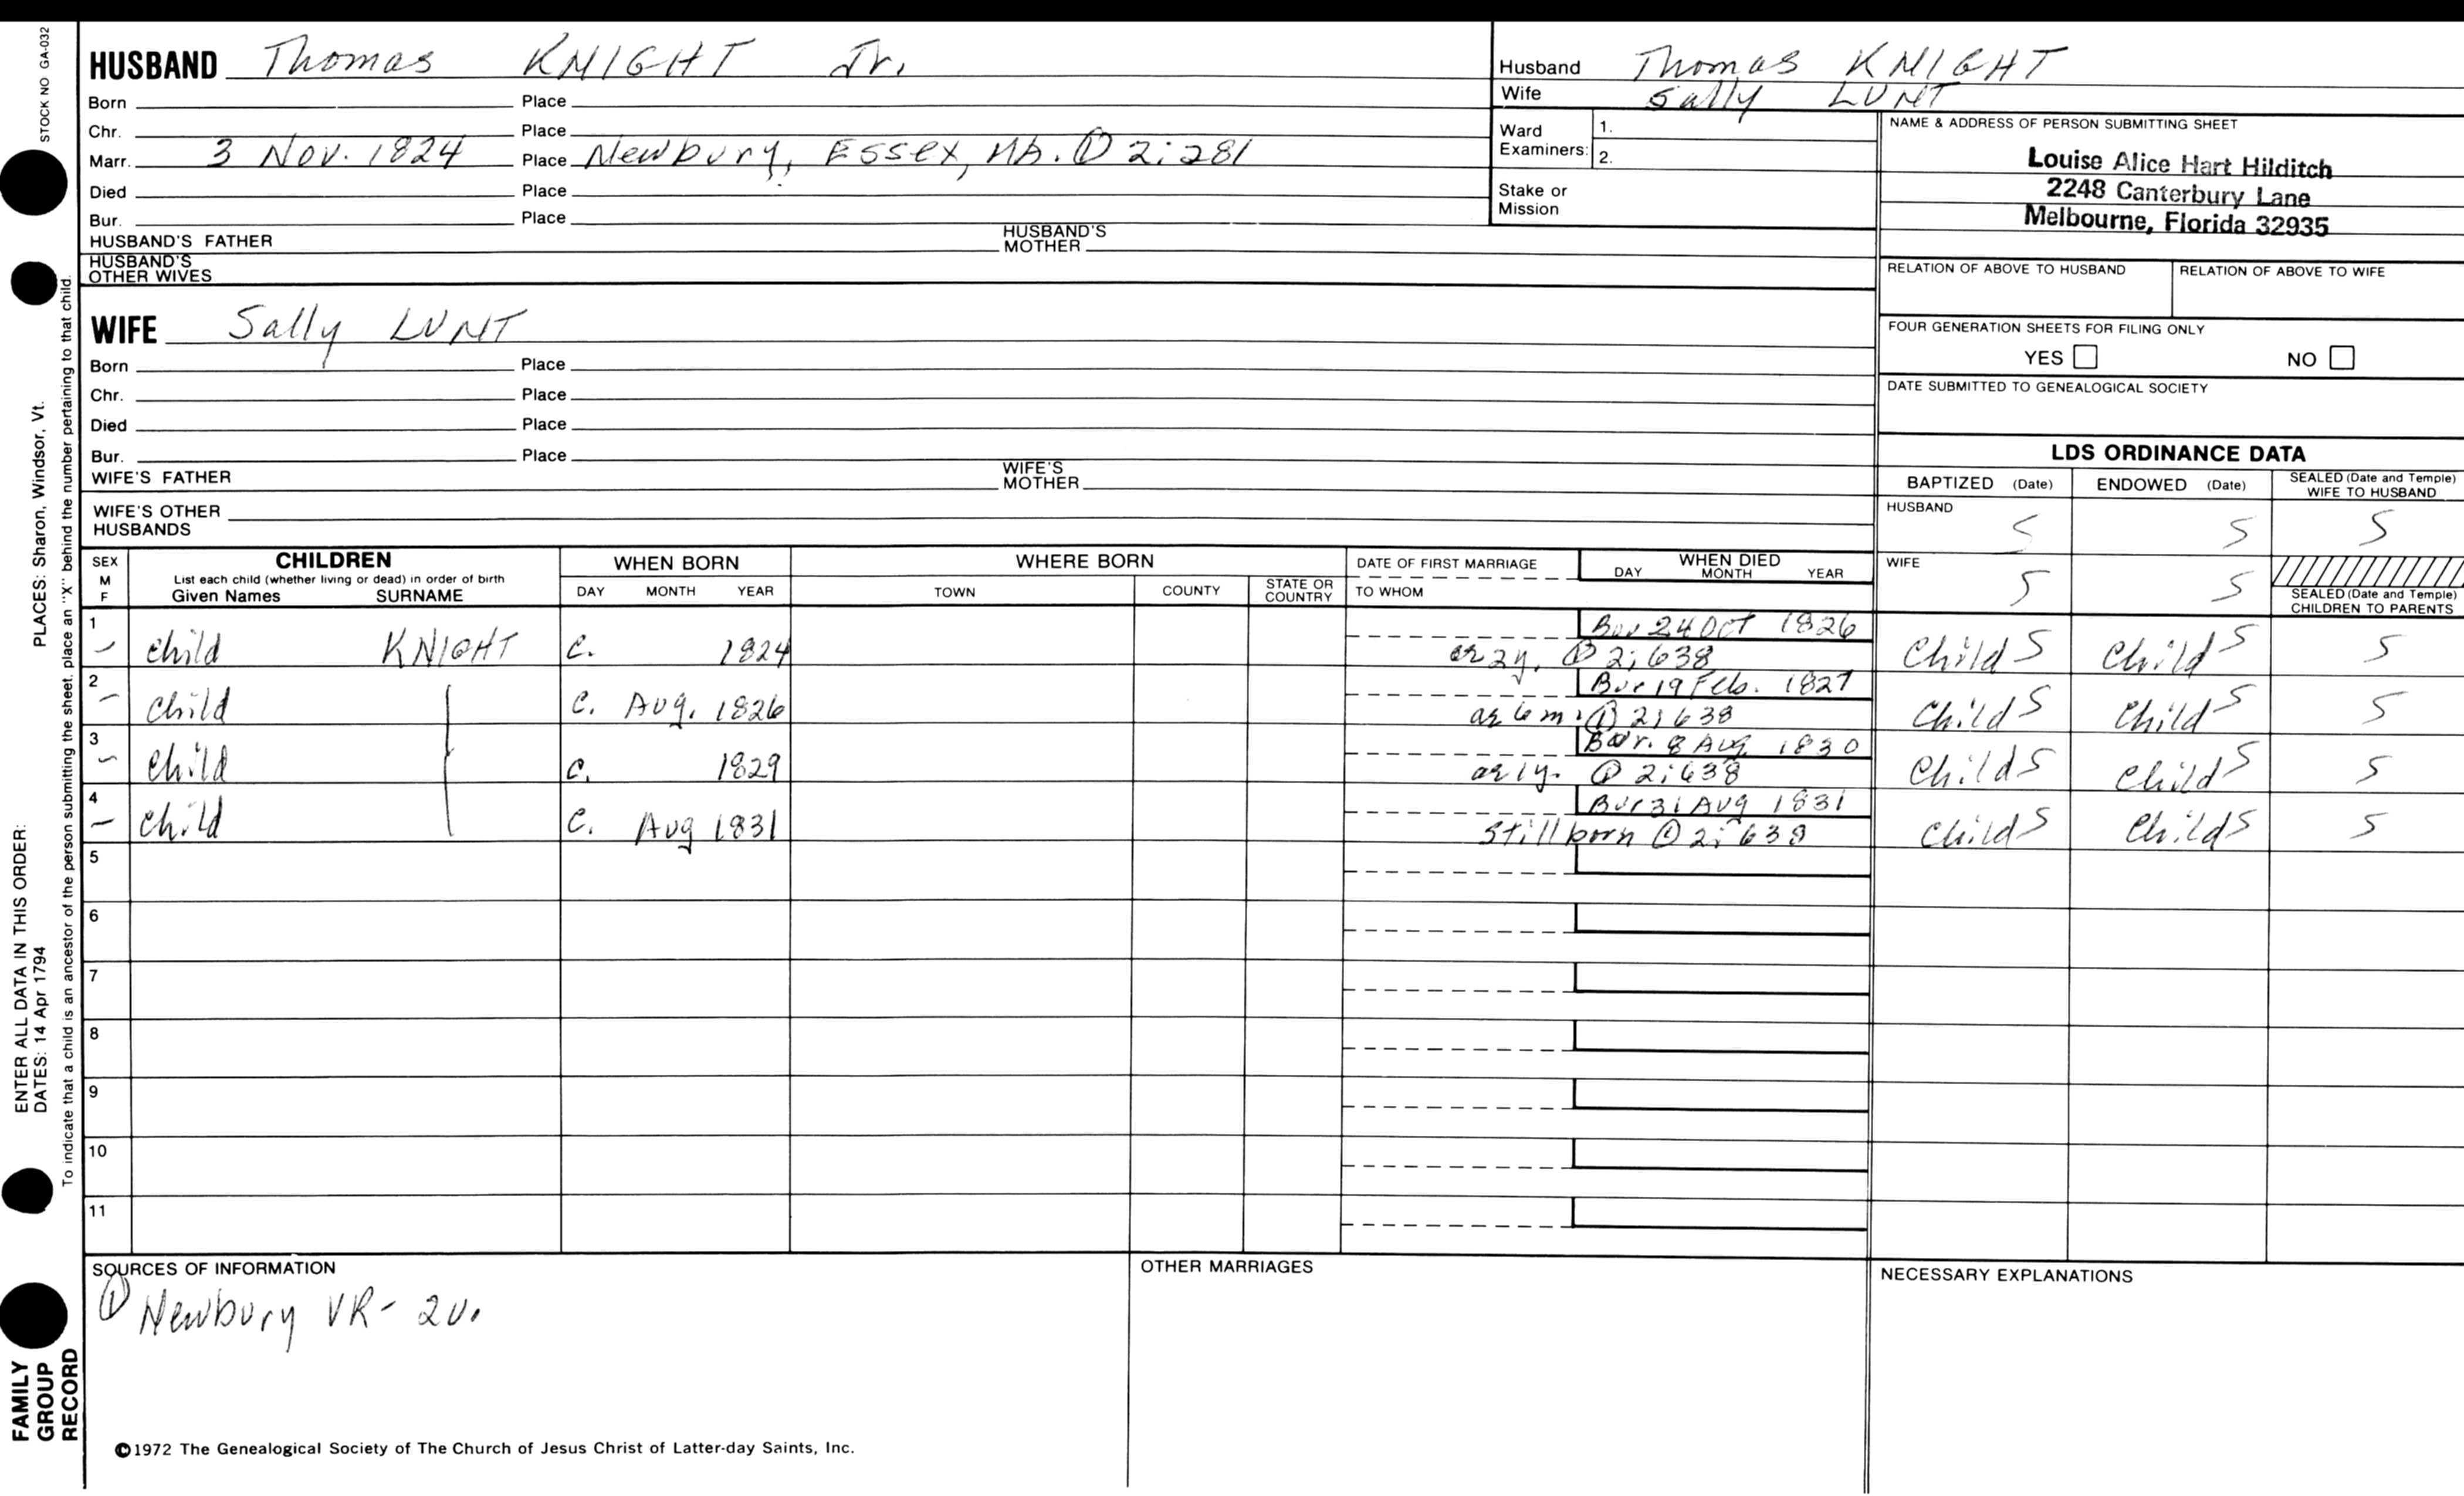 STOCK NO GA-032
HUSBAND Thomas KNIGHT Jr.
Born Place
Chr. Place
Marr. 3 Nov. 1824 Place Newbury, Essex, Ms. ① 2:281
Died Place
Bur. Place
HUSBAND'S FATHER HUSBAND'S MOTHER
HUSBAND'S OTHER WIVES
WIFE Sally LUNT
Born Place
Chr. Place
Died Place
Bur. Place
WIFE'S FATHER WIFE'S MOTHER
WIFE'S OTHER HUSBANDS
Husband Thomas KNIGHT
Wife Sally LUNT
Ward Examiners: 1.
2.
Stake or Mission
NAME & ADDRESS OF PERSON SUBMITTING SHEET
Louise Alice Hart Hilditch
2248 Canterbury Lane
Melbourne, Florida 32935
RELATION OF ABOVE TO HUSBAND RELATION OF ABOVE TO WIFE
FOUR GENERATION SHEETS FOR FILING ONLY
YES NO
DATE SUBMITTED TO GENEALOGICAL SOCIETY
LDS ORDINANCE DATA
BAPTIZED (Date) ENDOWED (Date) SEALED (Date and Temple) WIFE TO HUSBAND
HUSBAND S S S
WIFE S S
SEALED (Date and Temple) CHILDREN TO PARENTS
SEX M F
CHILDREN
List each child (whether living or dead) in order of birth
Given Names SURNAME
WHEN BORN
DAY MONTH YEAR
WHERE BORN
TOWN COUNTY STATE OR COUNTRY
DATE OF FIRST MARRIAGE
TO WHOM
WHEN DIED
DAY MONTH YEAR
1 - child KNIGHT c. 1824 Bur 24 Oct 1826
ae 2y. ① 2:638 Child S Child S S
2 - child c. Aug. 1826 Bur 19 Feb. 1827
ae 6m. ① 2:638 Child S Child S S
3 - child c. 1829 Bur. 8 Aug 1830
ae 1y. ① 2:638 Child S Child S S
4 - child c. Aug 1831 Bur 31 Aug 1831
stillborn ① 2:638 Child S Child S S
5
6
7
8
9
10
11
SOURCES OF INFORMATION
① Newbury VR- 2v.
OTHER MARRIAGES
NECESSARY EXPLANATIONS
©1972 The Genealogical Society of The Church of Jesus Christ of Latter-day Saints, Inc.
ENTER ALL DATA IN THIS ORDER:
DATES: 14 Apr 1794 PLACES: Sharon, Windsor, Vt.
To indicate that a child is an ancestor of the person submitting the sheet, place an "X" behind the number pertaining to that child.
FAMILY
GROUP
RECORD